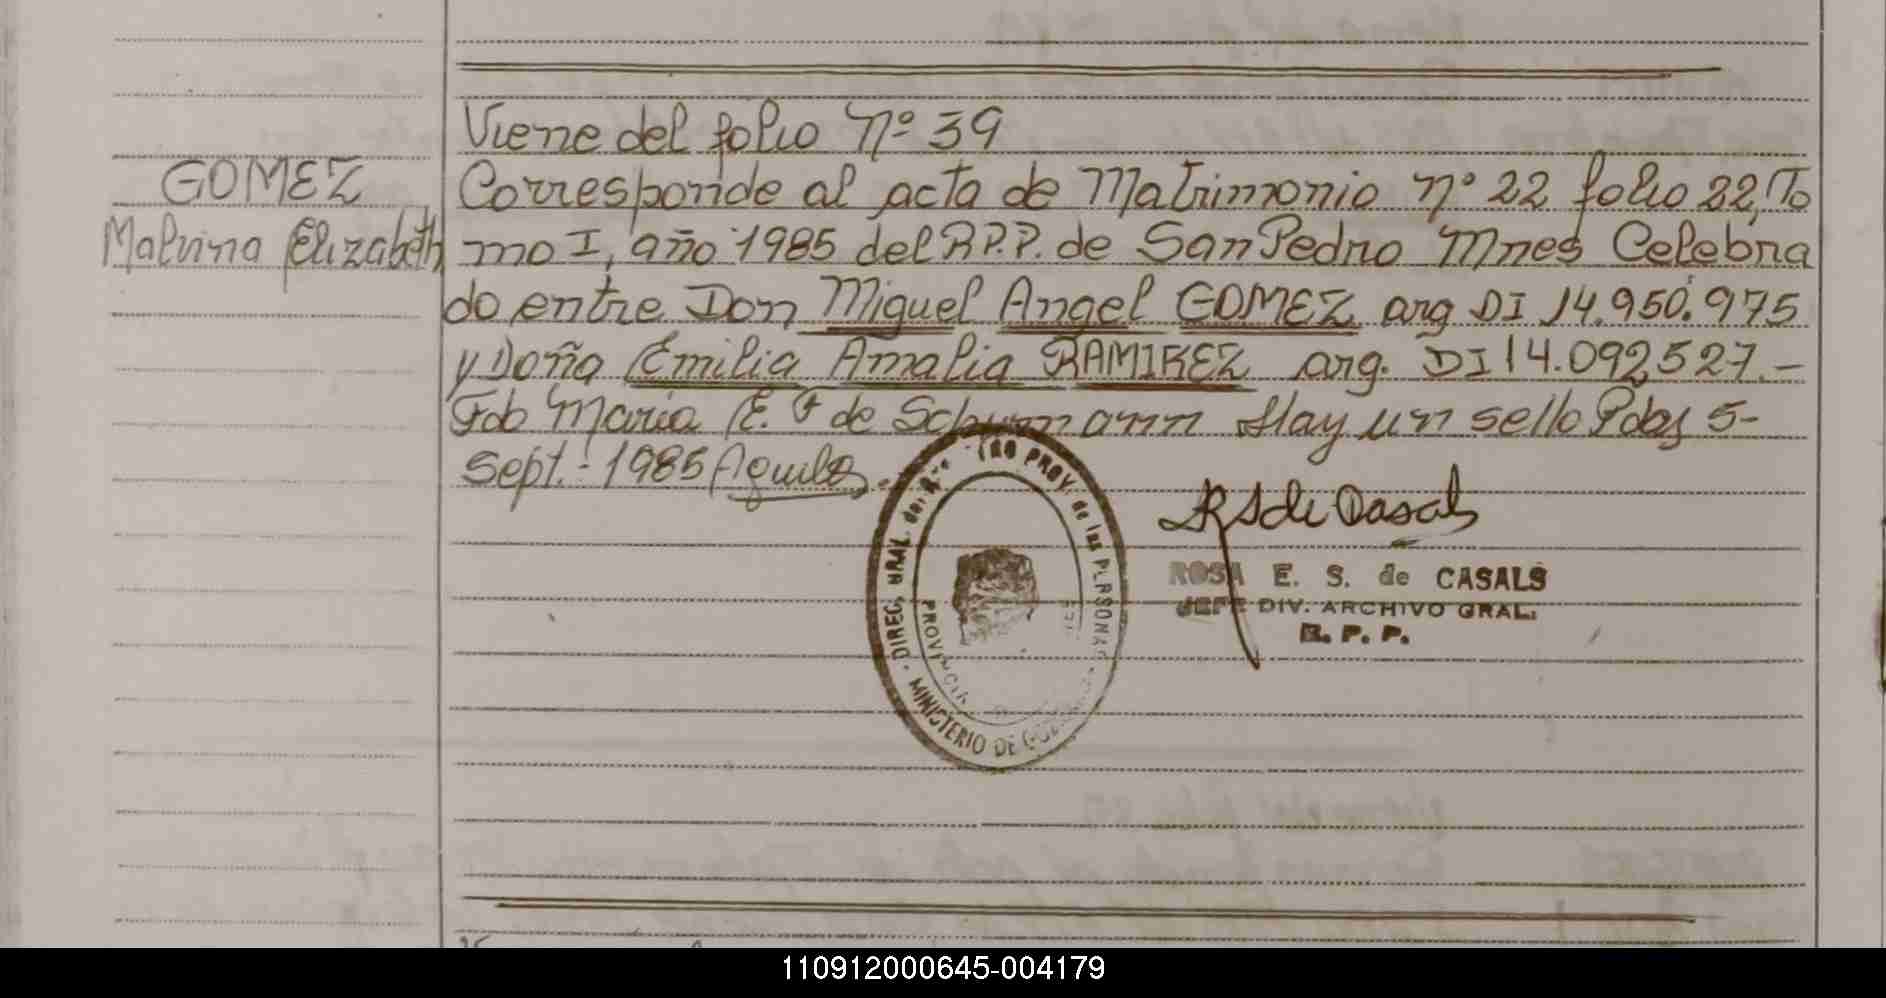 Viene del folio Nº 39
GOMEZ
Malvina Elizabeth
Corresponde al acta de Matrimonio nº 22 folio 22, To
mo I, año 1985 del R.P.P. de San Pedro Mnes Celebra
do entre Don Miguel Angel GOMEZ arg DI 14.950.975
y Doña Emilia Amalia RAMIREZ arg. DI 14.092,527.-
Fdo Maria E. F de Schumann Hay un sello Pdas 5-
Sept.- 1985
ROSA E. S. de CASALS
JEFE DIV. ARCHIVO GRAL.
R. P. P.
DIREC. GRAL. del PROV. de las PERSONAS
MINISTERIO DE
110912000645-004179